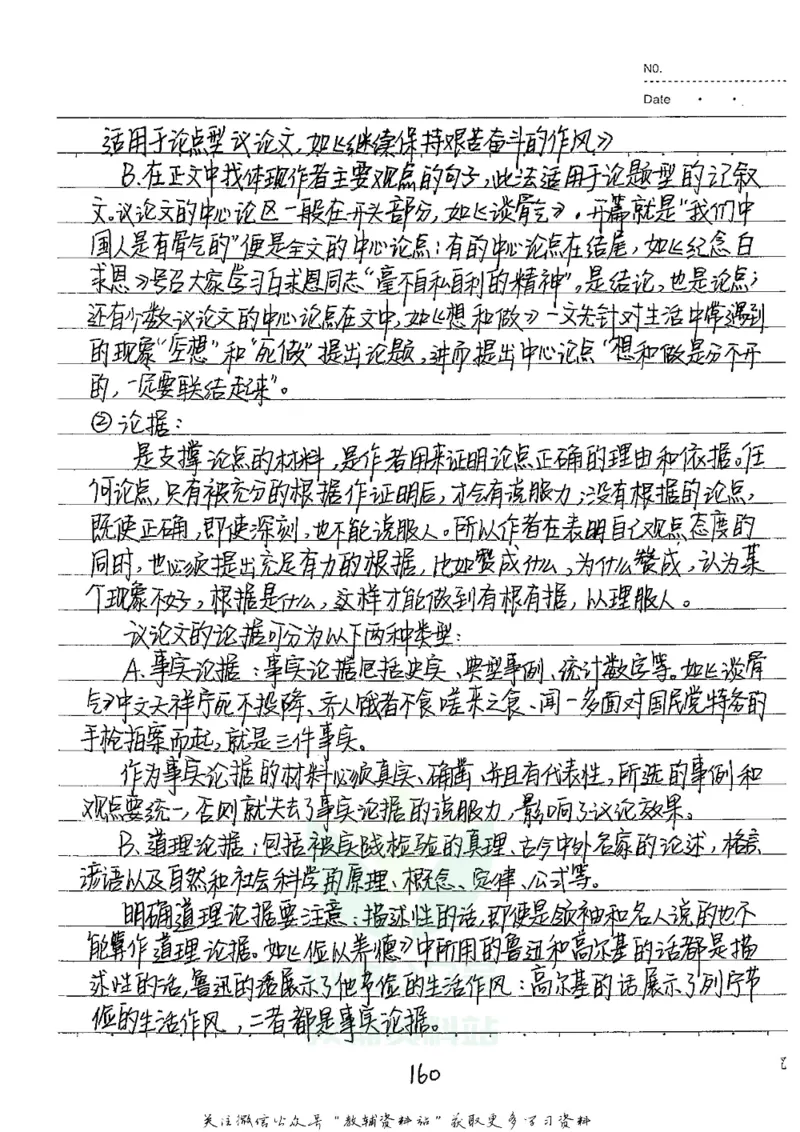 NO.
Date
适用于论点型议论文,如《继续保持艰苦奋斗的作风》
B.在正文中找体现作者主要观点的句子,此法适用于论题型的记叙
文。议论文的中心论区一般在开头部分,如《谈骨气》。开篇就是“我们中
国人是有骨气的”便是全文的中心论点;有的中心论点在结尾,如《纪念白
求恩》号召大家学习白求恩同志“毫不自私自利的精神”,是结论,也是论点;
还有个数议论文的中心论点在文中,如《想和做》一文先针对生活中常遇到
的现象“空想”和“死做”提出论题,进而提出中心论点“想和做是分不开
的,一定要联结起来”。
②论据:
是支撑论点的材料,是作者用来证明论点正确的理由和依据。任
何论点,只有被充分的根据作证明后,才会有说服力;没有根据的论点,
既使正确,即使深刻,也不能说服人。所以作者在表明自己观点态度的
同时,也必须提出充足有力的根据,比如赞成什么,为什么赞成,认为某
个现象不好,根据是什么,这样才能做到有根有据,以理服人。
议论文的论据可分为以下两种类型:
A.事实论据:事实论据包括史实、典型事例、统计数字等。如《谈骨
气》中文天祥宁死不投降、齐人饿者不食嗟来之食、闻一多面对国民党特务的
手枪拍案而起,就是三件事实。
作为事实论据的材料必须真实、确凿,并且有代表性,所选的事例和
观点要统一,否则就失去了事实论据的说服力,影响了议论效果。
B.道理论据:包括被实践检验的真理、古今中外名家的论述,格言
谚语以及自然和社会科学的原理、概念、定律、公式等。
明确道理论据要注意:描述性的话,即使是领袖和名人说的也不
能算作道理论据。如《俭以养德》中所用的鲁迅和高尔基的话都是描
述性的话,鲁迅的话展示了他节俭的生活作风;高尔基的话展示了列宁节
俭的生活作风,二者都是事实论据。
160
关注微信公众号“教辅资料站”获取更多学习资料